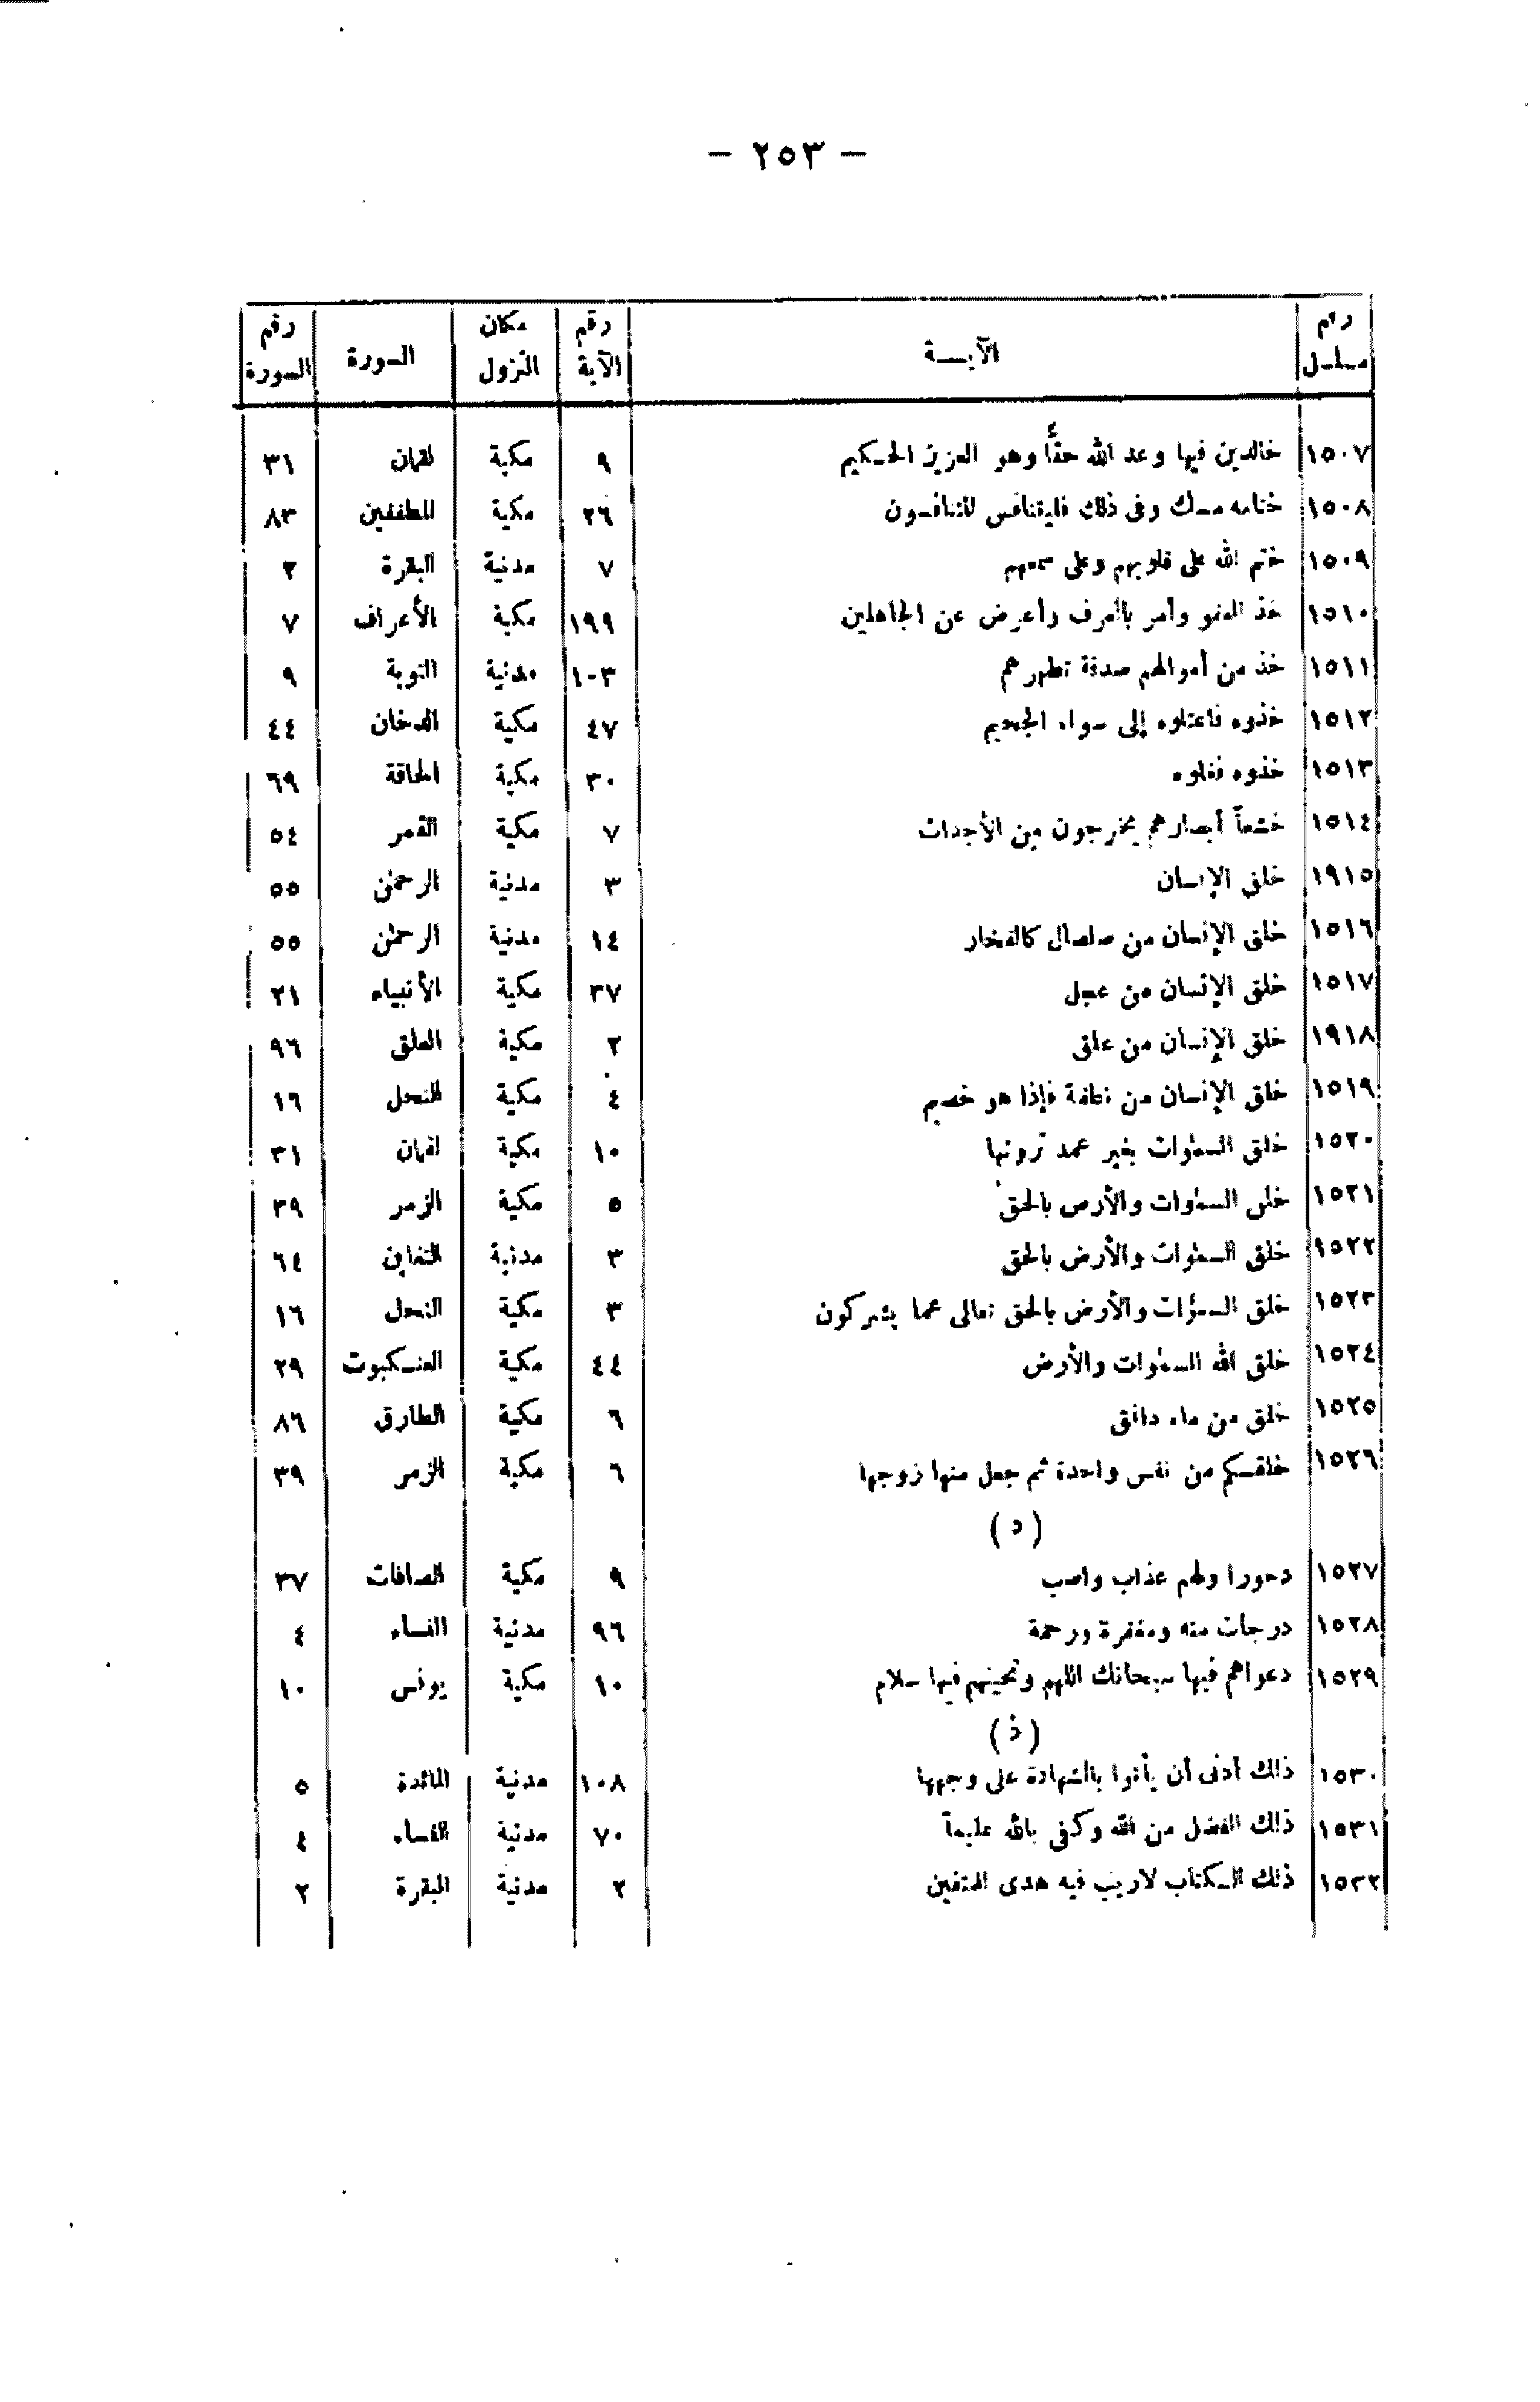 — ٢٥٣ —
رقم مسلسل الآيـــة رقم الآية مكان النزول السورة رقم السورة
١٥٠٧ خالدين فيها وعد الله حقاً وهو العزيز الحكيم ٩ مكية لقمان ٣١
١٥٠٨ ختامه مسك وفى ذلك فليتنافس المتنافسون ٢٦ مكية المطففين ٨٣
١٥٠٩ ختم الله على قلوبهم وعلى سمعهم ٧ مدنية البقرة ٢
١٥١٠ خذ العفو وأمر بالعرف وأعرض عن الجاهلين ١٩٩ مكية الأعراف ٧
١٥١١ خذ من أموالهم صدقة تطهرهم ١٠٣ مدنية التوبة ٩
١٥١٢ خذوه فاعتلوه إلى سواء الجحيم ٤٧ مكية الدخان ٤٤
١٥١٣ خذوه فغلوه ٣٠ مكية الحاقة ٦٩
١٥١٤ خشعاً أبصارهم يخرجون من الأجداث ٧ مكية القمر ٥٤
١٩١٥ خلق الإنسان ٣ مدنية الرحمٰن ٥٥
١٥١٦ خلق الإنسان من صلصال كالفخار ١٤ مدنية الرحمٰن ٥٥
١٥١٧ خلق الإنسان من عجل ٣٧ مكية الأنبياء ٢١
١٩١٨ خلق الإنسان من علق ٢ مكية العلق ٩٦
١٥١٩ خلق الإنسان من نطفة فإذا هو خصيم ٤ مكية النحل ١٦
١٥٢٠ خلق السمٰوات بغير عمد ترونها ١٠ مكية لقمان ٣١
١٥٢١ خلق السمٰوات والأرض بالحق ٥ مكية الزمر ٣٩
١٥٢٢ خلق السمٰوات والأرض بالحق ٣ مدنية التغابن ٦٤
١٥٢٣ خلق السمٰوات والأرض بالحق تعالى عما يشركون ٣ مكية النحل ١٦
١٥٢٤ خلق الله السمٰوات والأرض ٤٤ مكية العنكبوت ٢٩
١٥٢٥ خلق من ماء دافق ٦ مكية الطارق ٨٦
١٥٢٦ خلقكم من نفس واحدة ثم جعل منها زوجها ٦ مكية الزمر ٣٩
( د )
١٥٢٧ دحورا ولهم عذاب واصب ٩ مكية الصافات ٣٧
١٥٢٨ درجات منه ومغفرة ورحمة ٩٦ مدنية النساء ٤
١٥٢٩ دعواهم فيها سبحانك اللهم وتحيتهم فيها سلام ١٠ مكية يونس ١٠
( ذ )
١٥٣٠ ذلك أدنى أن يأتوا بالشهادة على وجهها ١٠٨ مدنية المائدة ٥
١٥٣١ ذلك الفضل من الله وكفى بالله عليماً ٧٠ مدنية النساء ٤
١٥٣٢ ذلك الكتاب لاريب فيه هدى للمتقين ٢ مدنية البقرة ٢